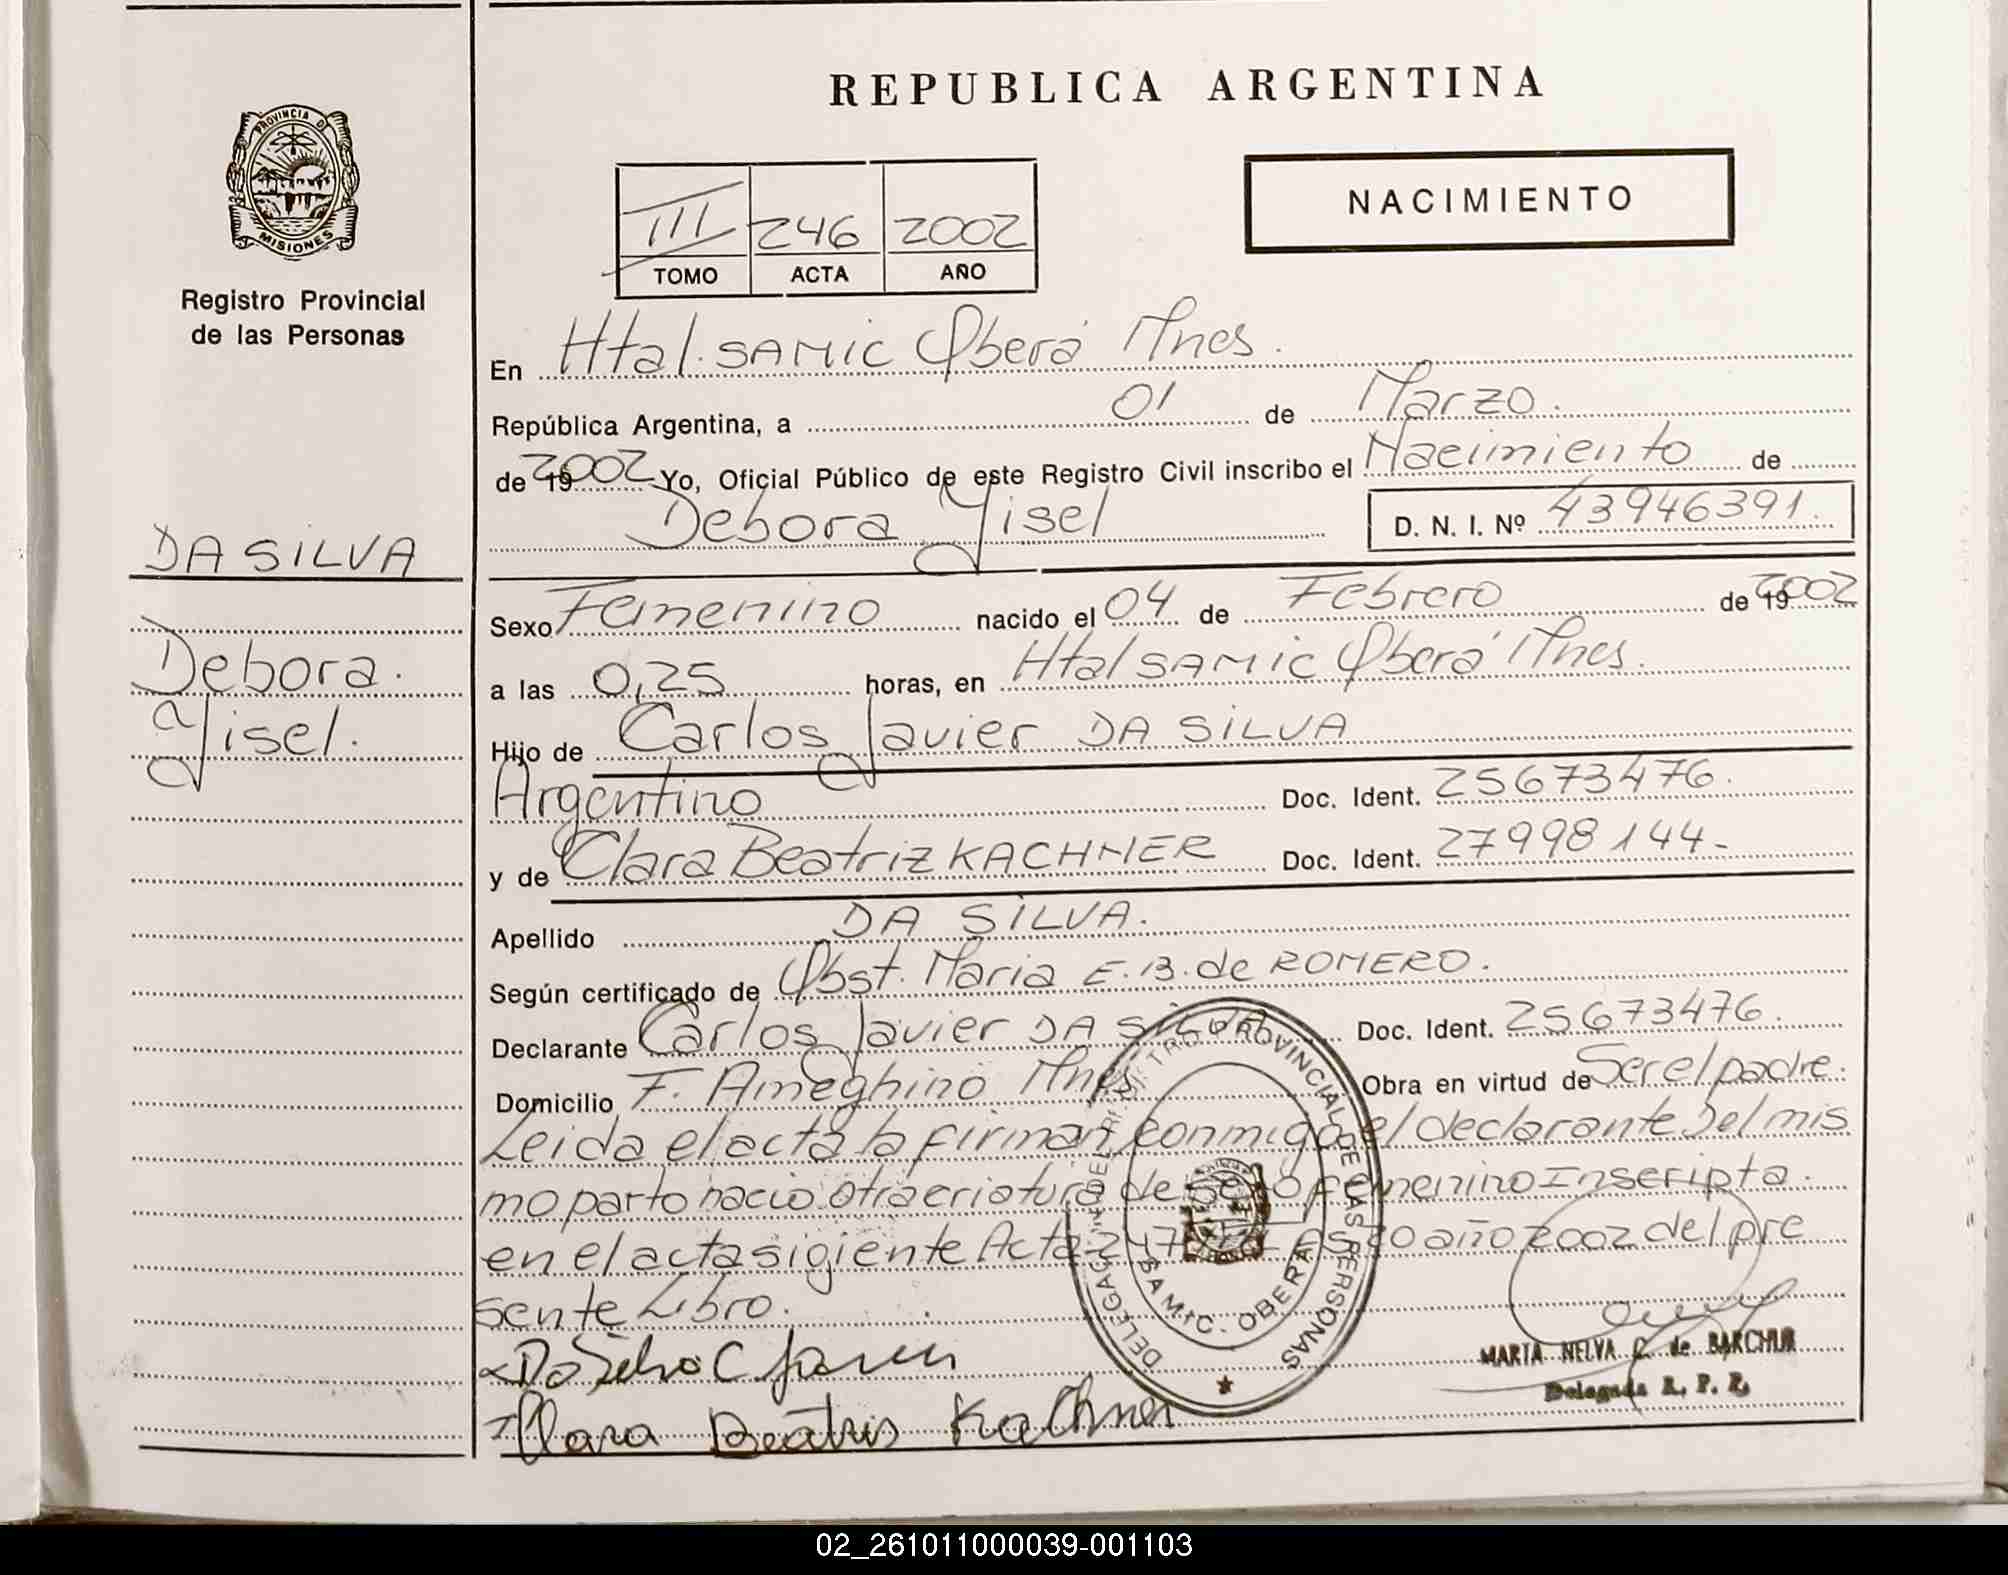 REPUBLICA ARGENTINA
PROVINCIA DE
MISIONES
Registro Provincial
de las Personas
III 246 2002
TOMO ACTA AÑO
NACIMIENTO
En Htal. SAMIC Oberá Mnes.
República Argentina, a 01 de Marzo.
de 19 2002 Yo, Oficial Público de este Registro Civil inscribo el Nacimiento de
Debora Yisel D. N. I. Nº 43946391.
DA SILVA
Debora.
Yisel.
Sexo Femenino nacido el 04 de Febrero de 19 2002
a las 0,25 horas, en Htal SAMIC Oberá Mnes.
Hijo de Carlos Javier DA SILVA
Argentino Doc. Ident. 25673476.
y de Clara Beatriz KACHNER Doc. Ident. 27998144-
Apellido DA SILVA.
Según certificado de Obst. Maria E. B. de ROMERO.
Declarante Carlos Javier DA SILVA Doc. Ident. 25673476.
Domicilio F. Ameghino Mnes Obra en virtud de Ser el padre.
Leida el acta la firman conmigo el declarante Del mis
mo parto nacio otra criatura de Sexo femenino Inscripta.
en el acta sigiente Acta 247 año 2002 del pre
sente Libro.
Da Silva C Javier
Clara Beatris Kachner
DELEGACION DEL REGISTRO PROVINCIAL DE LAS PERSONAS
SAMIC. OBERA
MARTA NELVA C. de BARCHUK
Delegada R. P. P.
02_261011000039-001103